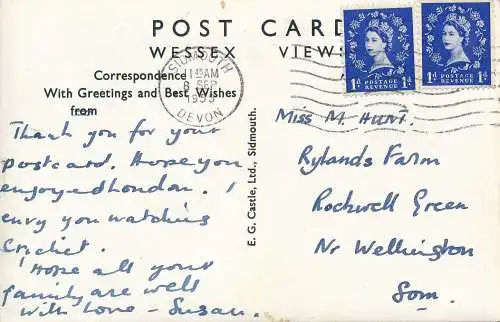 POST CARD
WESSEX VIEWS
SIDMOUTH
11 15 AM
8 SEP
DEVON
1d 1d
POSTAGE
REVENUE
1d 1d
POSTAGE
REVENUE
Correspondence
With Greetings and Best Wishes
from
Thank you for your
postcard. Hope you
enjoyed London. I
envy you watching
Cricket.
Hope all your
family are well
With love - Susan.
E. G. Castle, Ltd., Sidmouth.
Miss M. Hunt.
Rylands Farm
Rockwell Green
Nr Wellington
Som.